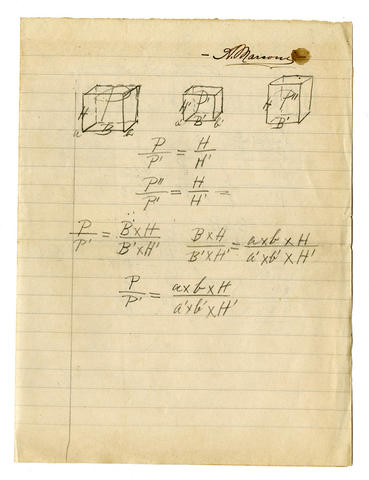 - A. Marconi
H P H' P' H P''
a B b a' B' b' B'
P/P' = H/H'
P''/P' = H/H' =
P/P' = B×H/B'×H' B×H/B'×H' = a×b×H/a'×b'×H'
P/P' = a×b×H/a'×b'×H'